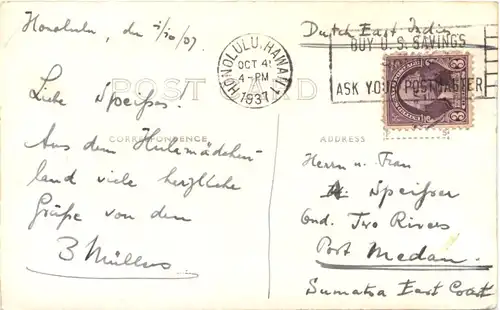 Honolulu, den 4/10/37.
Dutch East Indies
HONOLULU, HAWAII
OCT 4
4-PM
1937
BUY U.S. SAVINGS
ASK YOUR POSTMASTER
POST CARD
CORRESPONDENCE
ADDRESS
Liebe Speissers!
Aus dem Hulamädchen-
land viele herzliche
Grüße von den
3 Müllers
Herrn u. Frau
A. Speisser
Two Rivers
Port Medan.
Sumatra East Coast